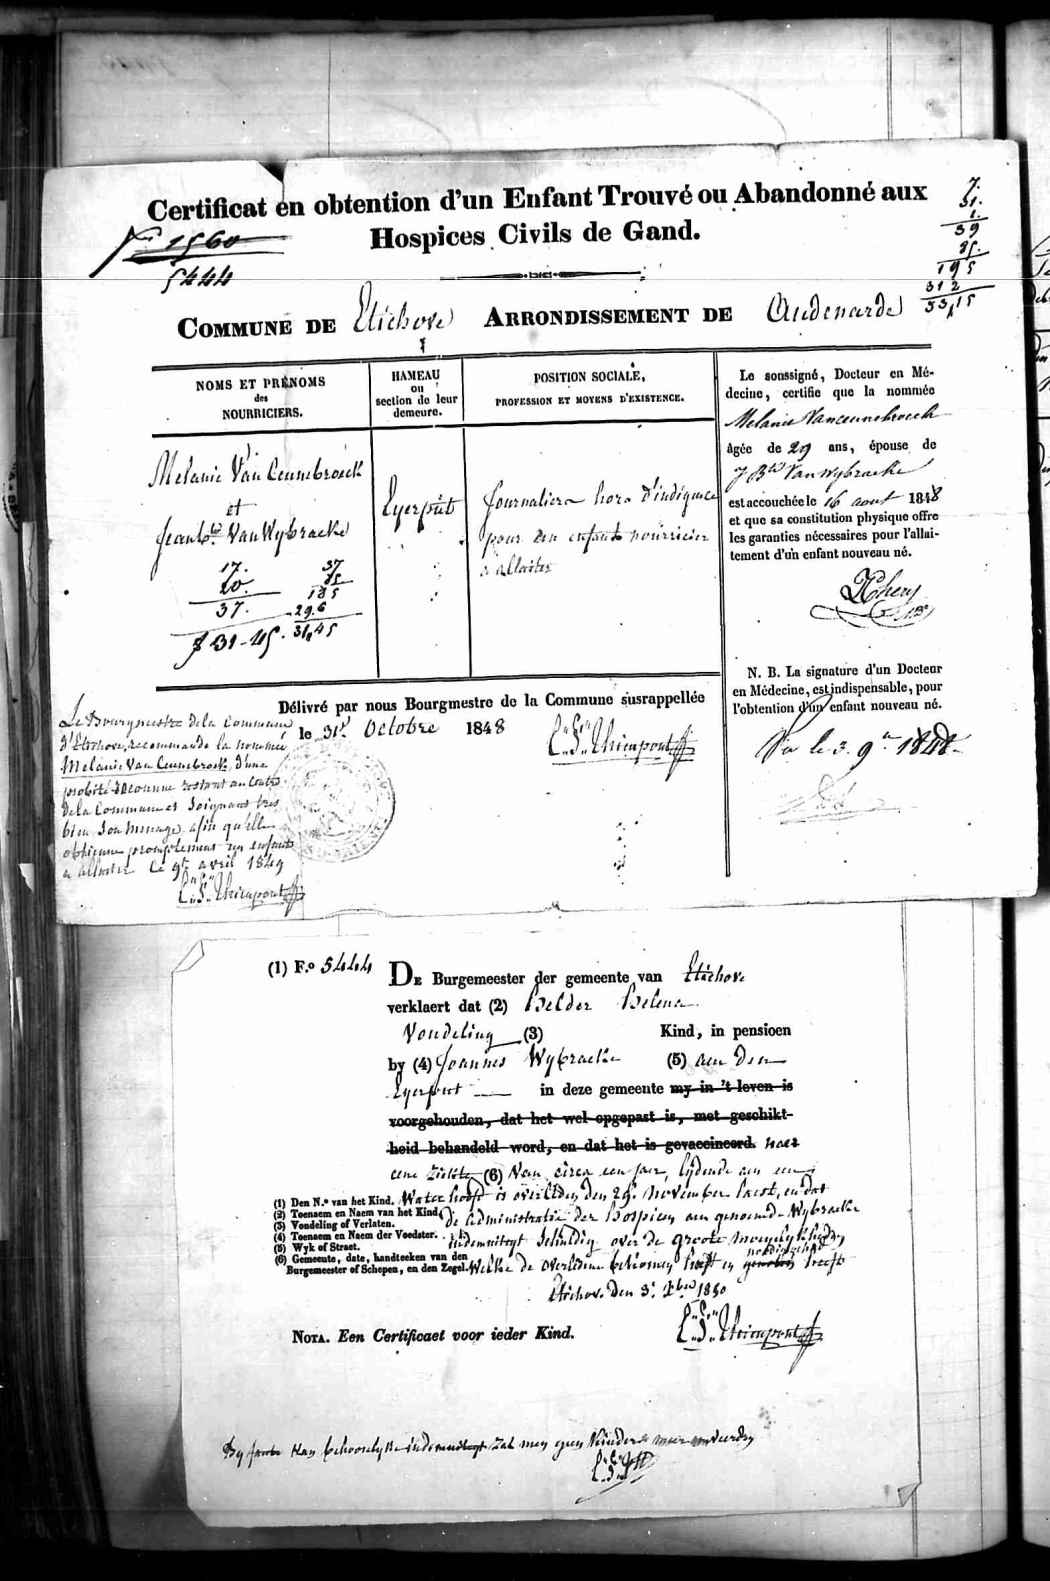 Certificat en obtention d'un Enfant Trouvé ou Abandonné aux
Hospices Civils de Gand.
1560
5444
7.
31.
1.
39
195
312
33,15
COMMUNE DE Etichove ARRONDISSEMENT DE Audenarde
NOMS ET PRÉNOMS
des
NOURRICIERS.
HAMEAU
ou
section de leur
demeure.
POSITION SOCIALE,
PROFESSION ET MOYENS D'EXISTENCE.
Melanie Van Ceunebroeck
et
Jean Bte Van Wybracke
Eyerpüt
Journaliers hors d'indigence
pour un enfant nourricier
a allaiter
17.
20.
37.
37
185
29.6
31,45
31-45.
Le soussigné, Docteur en Mé-
decine, certifie que la nommée
Melanie Vanceunebroeck
âgée de 29 ans, épouse de
J Bte Van Wybracke
est accouchée le 16 aout 1848
et que sa constitution physique offre
les garanties nécessaires pour l'allai-
tement d'un enfant nouveau né.
N. B. La signature d'un Docteur
en Médecine, est indispensable, pour
l'obtention d'un enfant nouveau né.
Vu le 3. 9re 1848
Délivré par nous Bourgmestre de la Commune susrappellée
le 31. Octobre 1848
Thienpont
Le Bourgmestre de la Commune
d'Etichove, recommande la nommée
Melanie Van Ceunebroeck, d'une
probité reconnue restant au centre
de la Commune et Soignant bien
bien Son menage, afin qu'elle
obtienne promptement un enfant
a allaiter le 9 avril 1849
Thienpont
(1) F.o 5444
DE Burgemeester der gemeente van Etichove
verklaert dat (2) Helder Helena
Vondeling (3) Kind, in pensioen
by (4) Joannes Wybracke (5) aen den
Eyerput in deze gemeente my in 't leven is
voorgehouden, dat het wel opgepast is, met geschikt-
heid behandeld word, en dat het is gevaccineerd. naer
eene ziekte (6) Van circa een jaer, lijdende aen een
Water hooft is overleden den 29. November laest, en dat
de administratie der Hospicen aen genoemde Wybracke
Indemniteyt Schuldig over de groote moeyelykheden
Welke de overledene behoeven heeft en genoten noodig gehad heeft
(1) Den N.o van het Kind.
(2) Toenaem en Naem van het Kind.
(3) Vondeling of Verlaten.
(4) Toenaem en Naem der Voedster.
(5) Wyk of Straet.
(6) Gemeente, date, handteeken van den
Burgemeester of Schepen, en den Zegel.
Etichove den 3. Xber 1850
Thienpont
NOTA. Een Certificaet voor ieder Kind.
By faute van behoorelyke indemniteyt zal men geen Kinders meer aenveerden